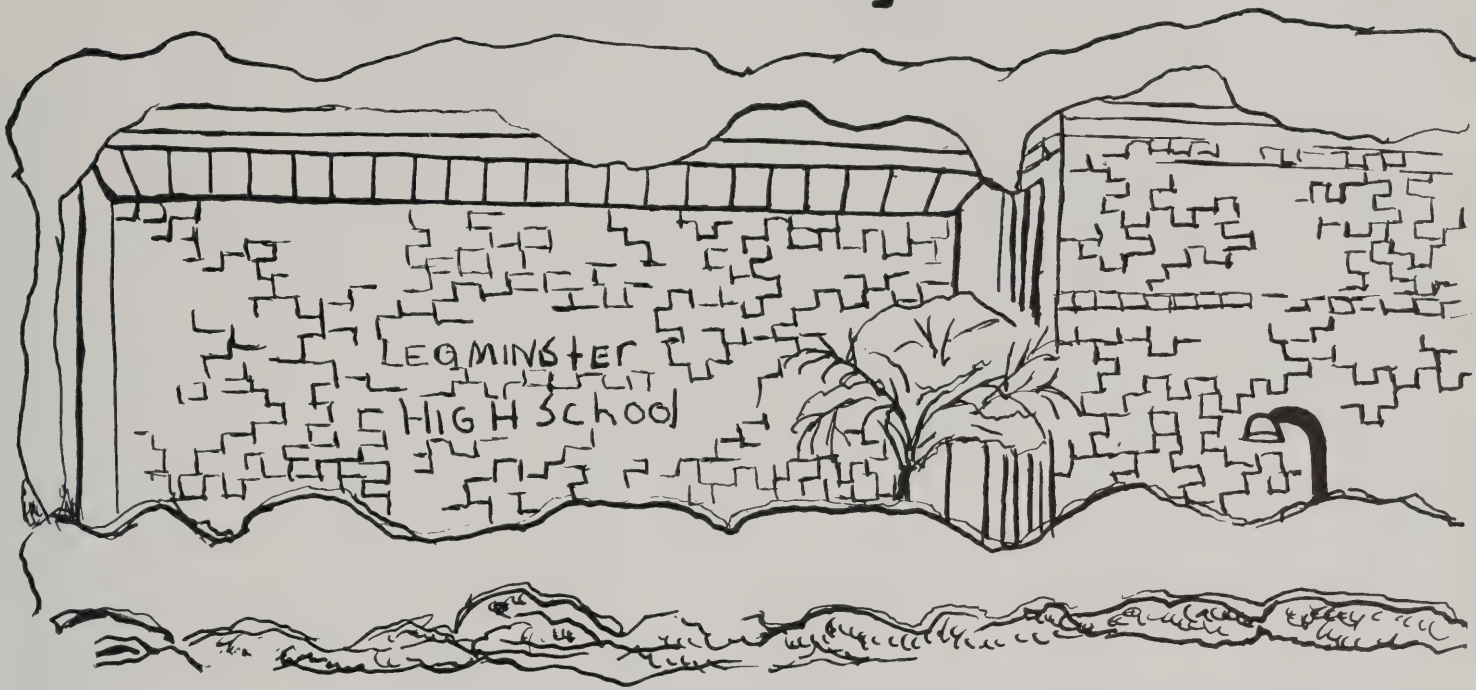 LEOMINSter
HIGH School